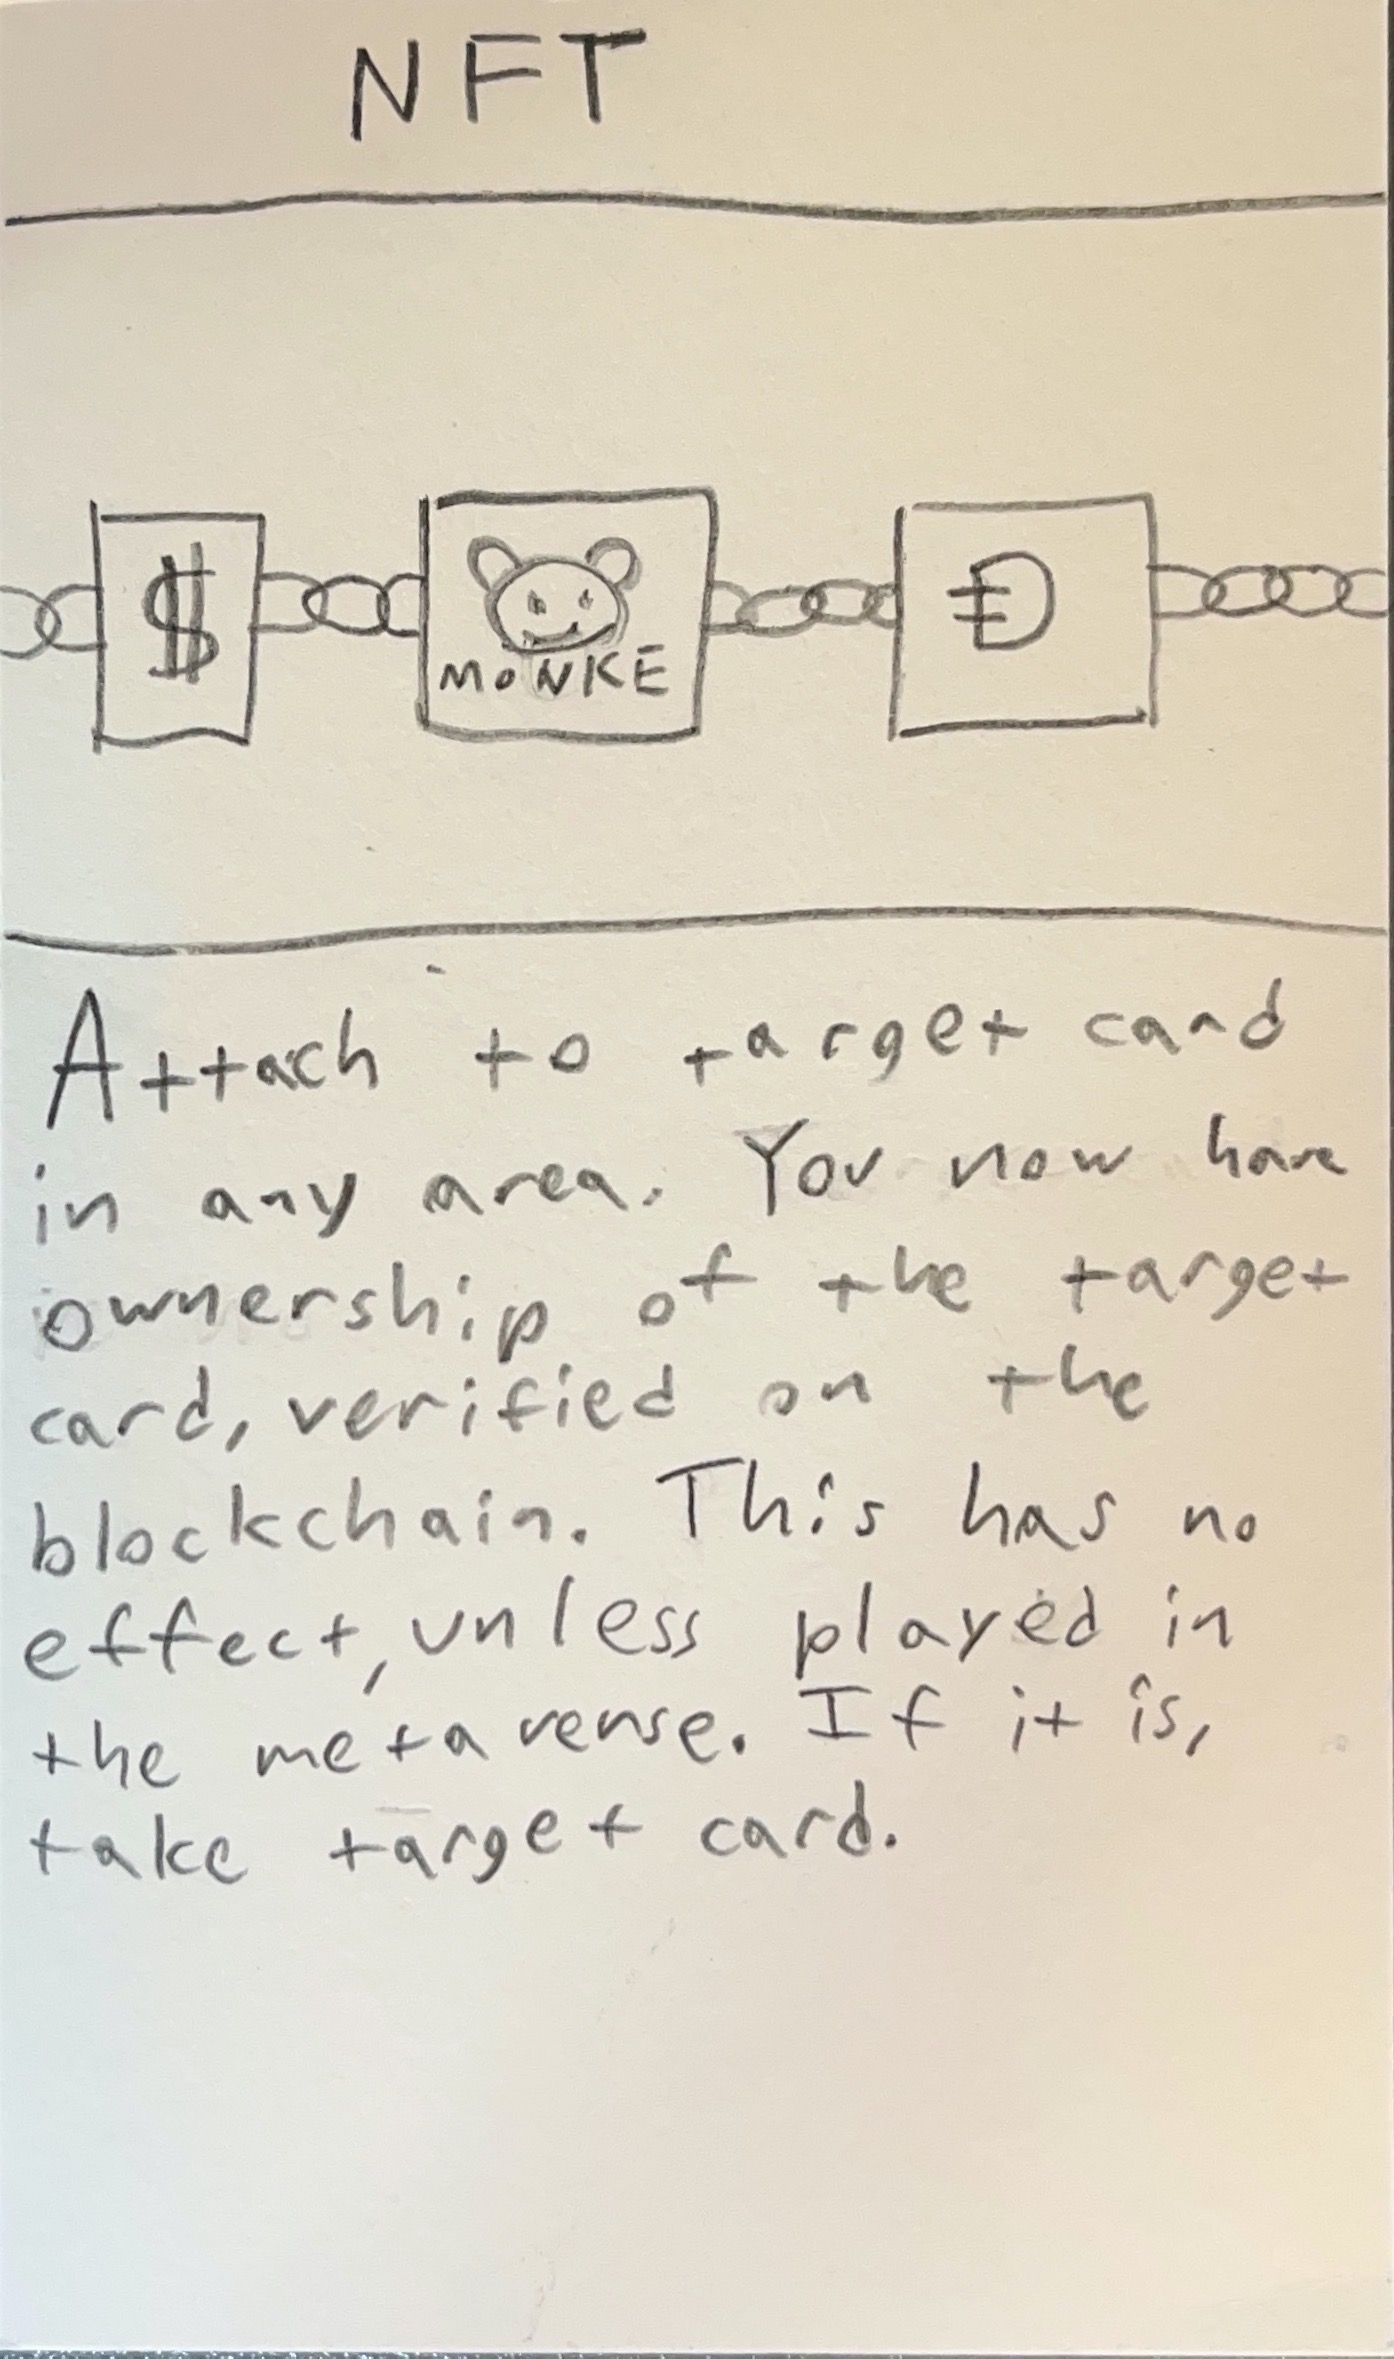 NFT
$ MONKE Ð
Attach to target card
in any area. You now have
ownership of the target
card, verified on the
blockchain. This has no
effect, unless played in
the metaverse. If it is,
take target card.